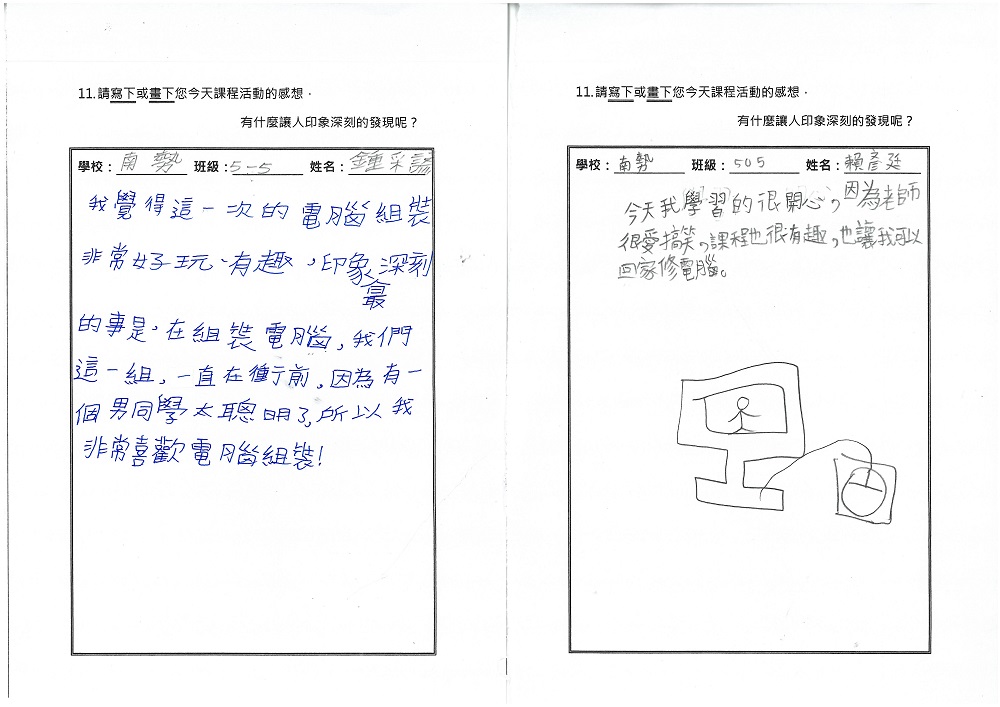 11.請寫下或畫下您今天課程活動的感想.
有什麼讓人印象深刻的發現呢？
學校：南勢 班級：5-5 姓名：鍾采
我覺得這一次的電腦組裝
非常好玩、有趣，印象深刻
最
的事是，在組裝電腦，我們
這一組，一直在衝前，因為有一
個男同學太聰明了，所以我
非常喜歡電腦組裝!
11.請寫下或畫下您今天課程活動的感想.
有什麼讓人印象深刻的發現呢？
學校：南勢 班級：505 姓名：賴彥廷
今天我學習的很開心，因為老師
很愛搞笑，課程也很有趣，也讓我可以
回家修電腦。